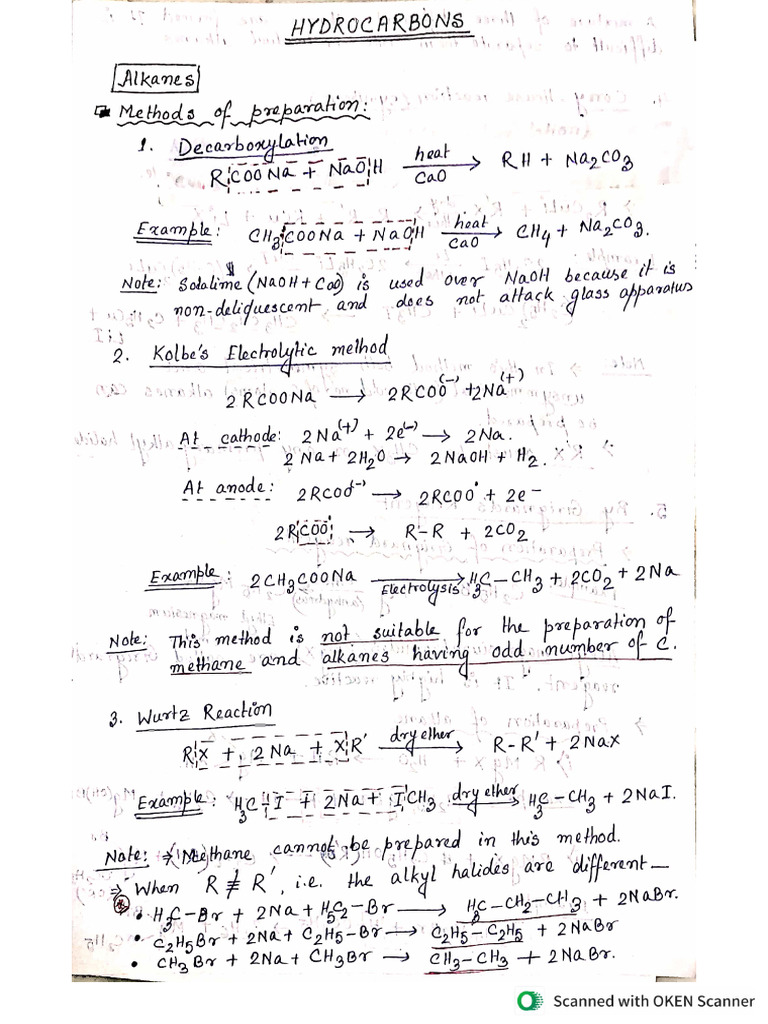 HYDROCARBONS
Alkanes
Methods of preparation:
1. Decarboxylation
RCOONa + NaOH heat CaO → RH + Na2CO3
Example: CH3COONa + NaOH heat CaO → CH4 + Na2CO3.
Note: Sodalime (NaOH + CaO) is used over NaOH because it is
non-deliquescent and does not attack glass apparatus
2. Kolbe's Electrolytic method
2RCOONa → 2RCOO(-) + 2Na(+)
At cathode: 2Na(+) + 2e(-) → 2Na.
2Na + 2H2O → 2NaOH + H2.
At anode: 2RCOO(-) → 2RCOO• + 2e-
2RCOO• → R-R + 2CO2
Example: 2CH3COONa Electrolysis → H3C-CH3 + 2CO2 + 2Na
Note: This method is not suitable for the preparation of
methane and alkanes having odd number of C.
3. Wurtz Reaction
RX + 2Na + XR' dry ether → R-R' + 2NaX
Example: H3C-I + 2Na + ICH3 dry ether → H3C-CH3 + 2NaI.
Note: ⇒ Methane cannot be prepared in this method.
⇒ When R ≠ R', i.e. the alkyl halides are different—
• H3C-Br + 2Na + H5C2-Br → H3C-CH2-CH3 + 2NaBr.
• C2H5Br + 2Na + C2H5-Br → C2H5-C2H5 + 2NaBr
• CH3Br + 2Na + CH3Br → CH3-CH3 + 2NaBr.
Scanned with OKEN Scanner